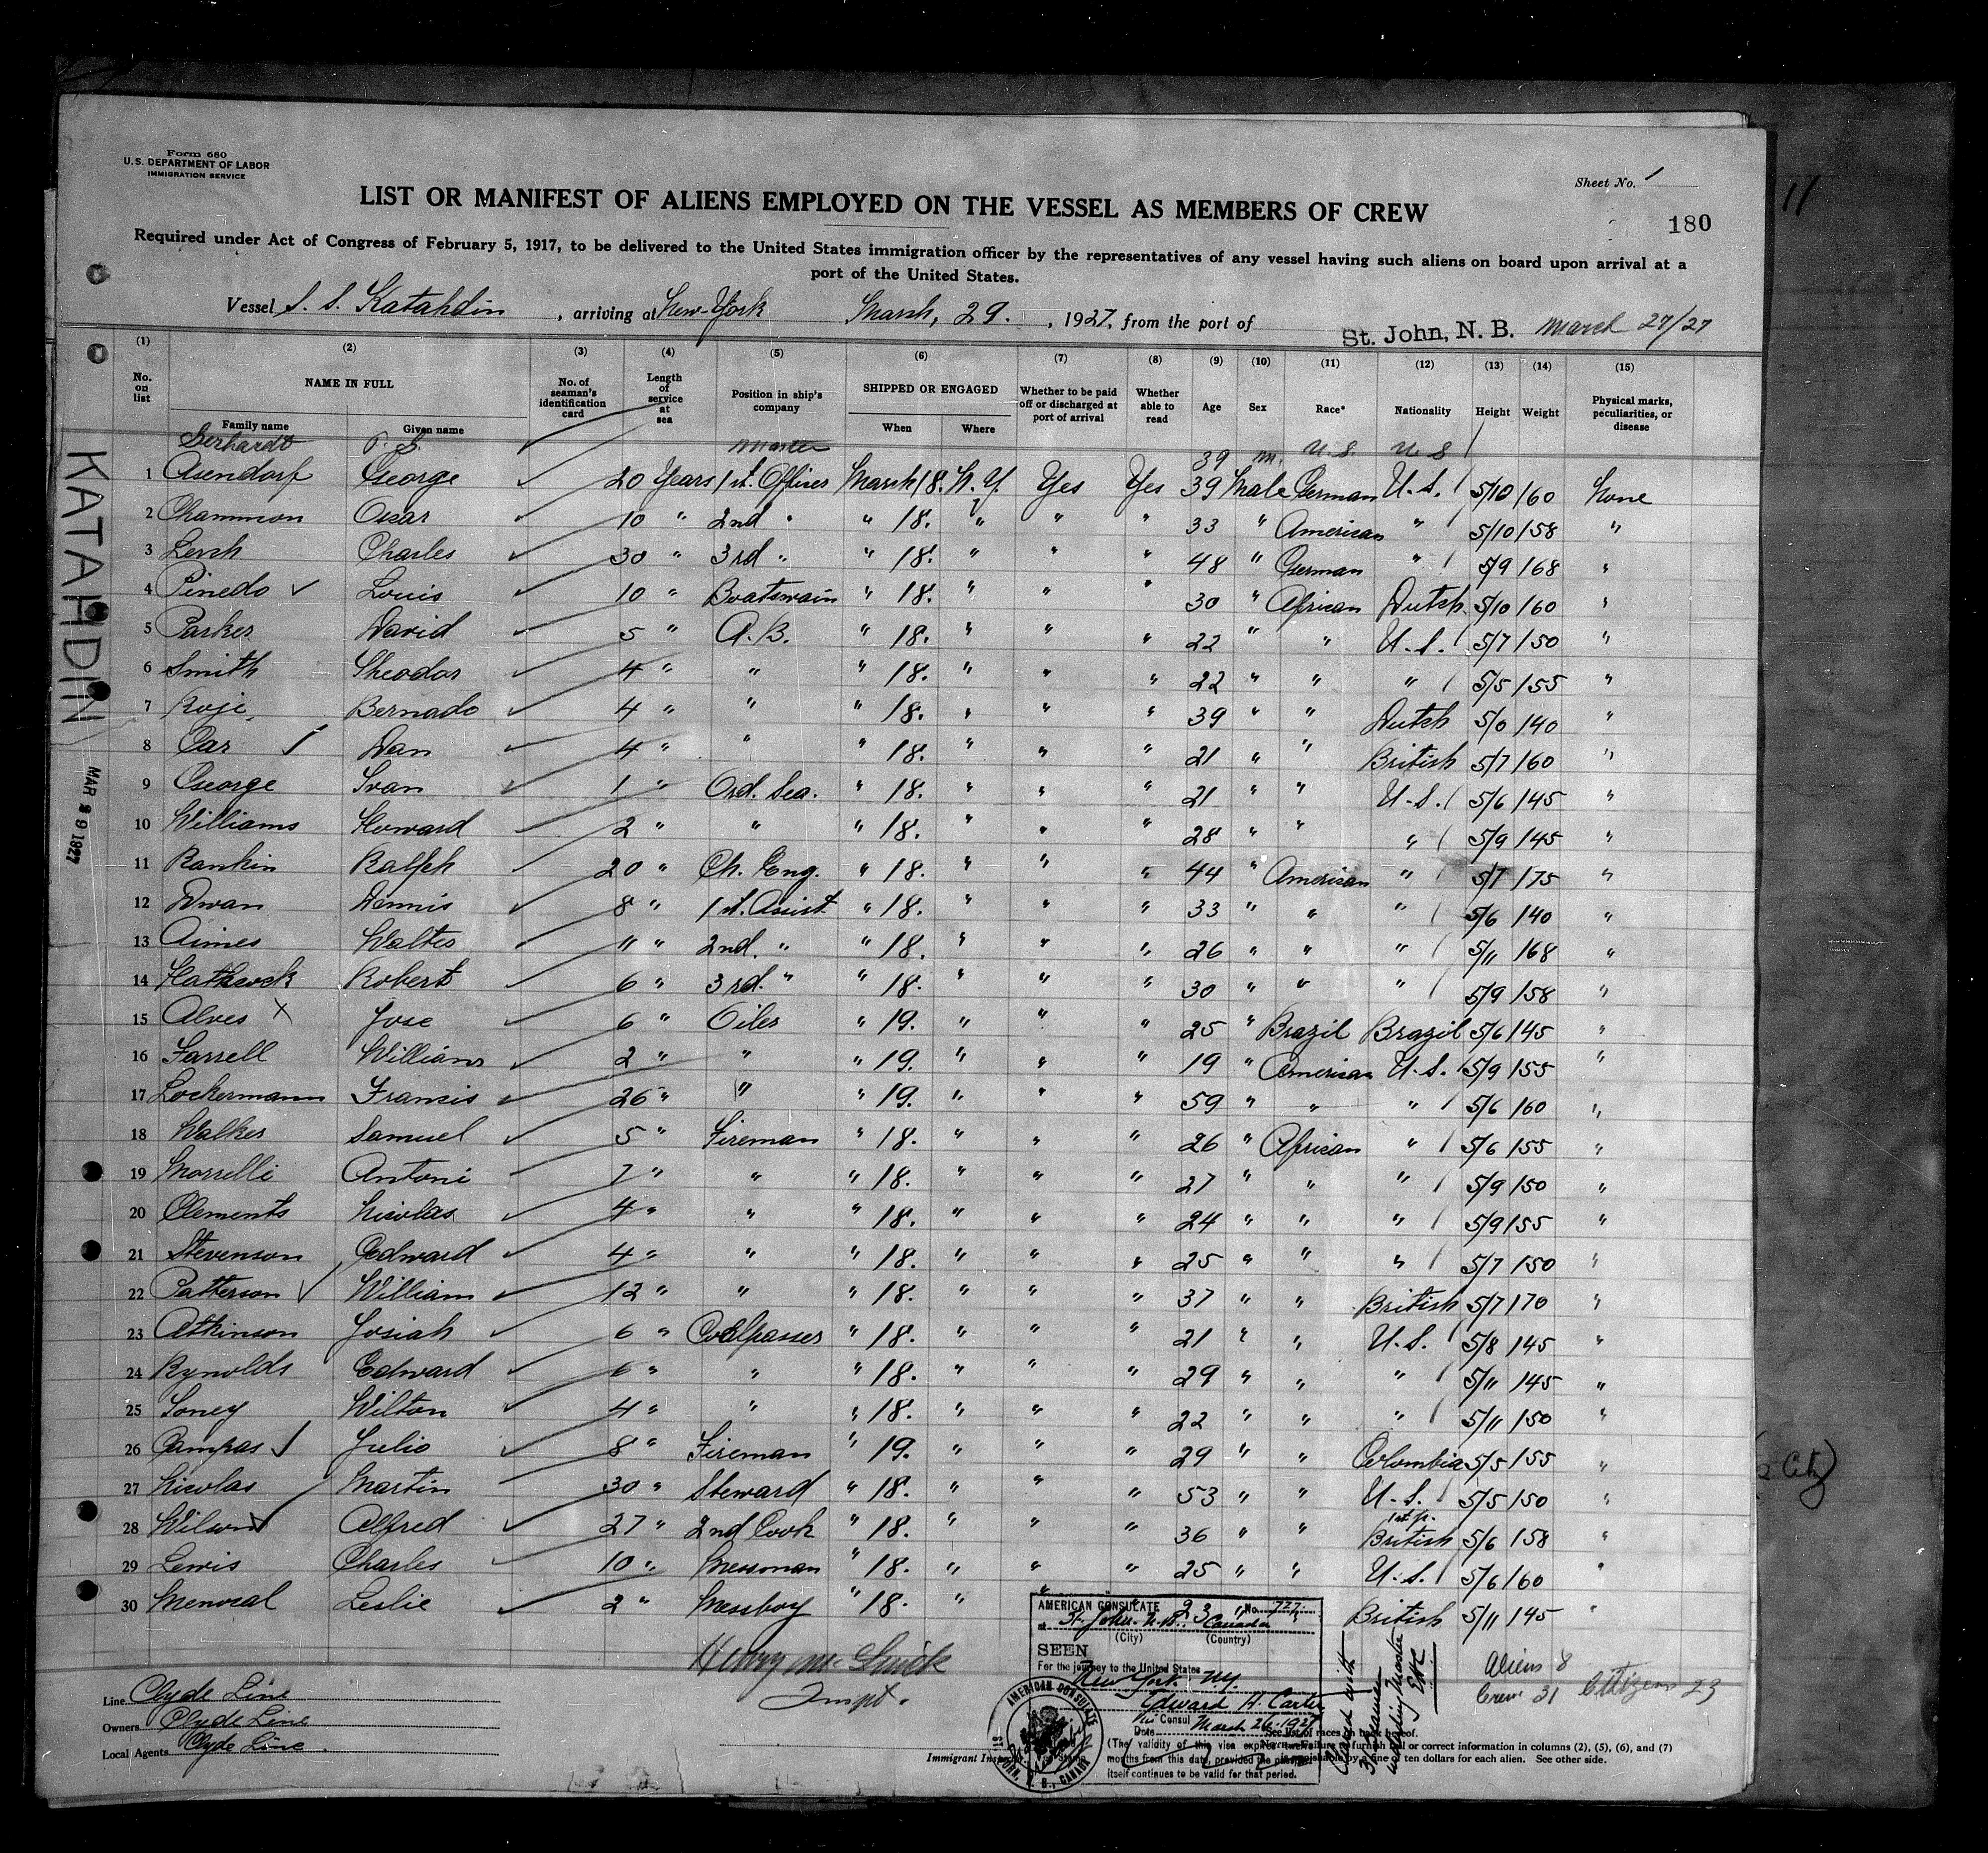 Form 680
U.S. DEPARTMENT OF LABOR
IMMIGRATION SERVICE
Sheet No. 1
11
LIST OR MANIFEST OF ALIENS EMPLOYED ON THE VESSEL AS MEMBERS OF CREW
180
Required under Act of Congress of February 5, 1917, to be delivered to the United States immigration officer by the representatives of any vessel having such aliens on board upon arrival at a
port of the United States.
Vessel S. S. Katahdin, arriving at New-York March, 29., 1927, from the port of St. John, N. B. March 27/27
(1) (2) (3) (4) (5) (6) (7) (8) (9) (10) (11) (12) (13) (14) (15)
No. on list NAME IN FULL Family name Given name No. of seaman's identification card Length of service at sea Position in ship's company SHIPPED OR ENGAGED When Where Whether to be paid off or discharged at port of arrival Whether able to read Age Sex Race* Nationality Height Weight Physical marks, peculiarities, or disease
Gerhardt P. G. ✓ Master 39 m. U.S. U.S /
1 Asendorf George ✓ 20 Years 1st. Officer March 18. N. Y. Yes Yes 39 Male German U.S. / 5/10 160 None
2 Chammon Oscar ✓ 10 " 2nd " " 18. " " " 33 " American " / 5/10 158 "
3 Lerch Charles ✓ 30 " 3rd " " 18. " " " 48 " German " / 5/9 168 "
4 Pinedo ✓ Louis ✓ 10 " Boatswain " 18. " " " 30 " African Dutch. 5/10 160 "
5 Parker David ✓ 5 " A.B. " 18. " " " 22 " " U.S. / 5/7 150 "
6 Smith Theodor ✓ 4 " " " 18. " " " 22 " " " / 5/5 155 "
7 Roje, Bernado ✓ 4 " " " 18. " " " 39 " " Dutch 5/0 140 "
8 Oar ✓ Dan ✓ 4 " " " 18. " " " 21 " " British 5/7 160 "
9 George Ivan ✓ 1 " Ord. Sea. " 18. " " " 21 " " U.S. / 5/6 145 "
10 Williams Howard ✓ 2 " " " 18. " " " 28 " " " / 5/9 145 "
11 Rankin Ralph ✓ 20 " Ch. Eng. " 18. " " " 44 " American " / 5/7 175 "
12 Dwan Dennis ✓ 8 " 1st. Assist " 18. " " " 33 " " " / 5/6 140 "
13 Aimes Walter ✓ " " 2nd. " " 18. " " " 26 " " " / 5/11 168 "
14 Hathcock Robert ✓ 6 " 3rd. " " 18. " " " 30 " " " / 5/9 158 "
15 Alves X Jose ✓ 6 " Oiler " 19. " " " 25 " Brazil Brazil 5/6 145 "
16 Farrell William ✓ 2 " " " 19. " " " 19 " American U.S. / 5/9 155 "
17 Lockermann Francis ✓ 26 " " " 19. " " " 59 " " " / 5/6 160 "
18 Walker Samuel ✓ 5 " Fireman " 18. " " " 26 " African " / 5/6 155 "
19 Morrelli Antoni ✓ 7 " " " 18. " " " 27 " " " / 5/9 150 "
20 Clements Nicolas ✓ 4 " " " 18. " " " 24 " " " / 5/9 155 "
21 Stevenson Edward ✓ 4 " " " 18. " " " 25 " " " / 5/7 150 "
22 Patterson ✓ William ✓ 12 " " " 18. " " " 37 " " British 5/7 170 "
23 Atkinson Josiah ✓ 6 " Coalpasser " 18. " " " 21 " " U.S. / 5/8 145 "
24 Rynolds Edward ✓ 6 " " " 18. " " " 29 " " " / 5/11 145 "
25 Toney Wilton ✓ 4 " " " 18. " " " 22 " " " / 5/11 150 "
26 Campas ✓ Julio ✓ 8 " Fireman " 19. " " " 29 " " Colombia 5/5 155 "
27 Nicolas Martin ✓ 30 " Steward " 18. " " " 53 " " U.S. / 5/5 150 "
28 Wilson ✓ Alfred ✓ 27 " 2nd Cook " 18. " " " 36 " " 1st p. British 5/6 158 "
29 Lewis Charles ✓ 10 " Messman " 18. " " " 25 " " U.S. / 5/6 160 "
30 Menoral Leslie ✓ 2 " Messboy " 18. " " 23 " British 5/11 145 "
KATAHDIN
MAR 29 1927
AMERICAN CONSULATE No. 727.
at St. John. N.B. Canada
(City) (Country)
SEEN
For the journey to the United States
New York. NY.
Edward H. Carter
Vice Consul
Date March 26-1927
(The validity of this visa expires twelve months from this date, provided the passport itself continues to be valid for that period.
AMERICAN CONSULATE
ST. JOHN, N. B., CANADA
Aliens 8
Crew 31 Citizens 23
Line Clyde Line
Owners Clyde Line
Local Agents Clyde Line.
Immigrant Inspector
See list of races on back hereof.
furnish full or correct information in columns (2), (5), (6), and (7)
is punishable by a fine of ten dollars for each alien. See other side.